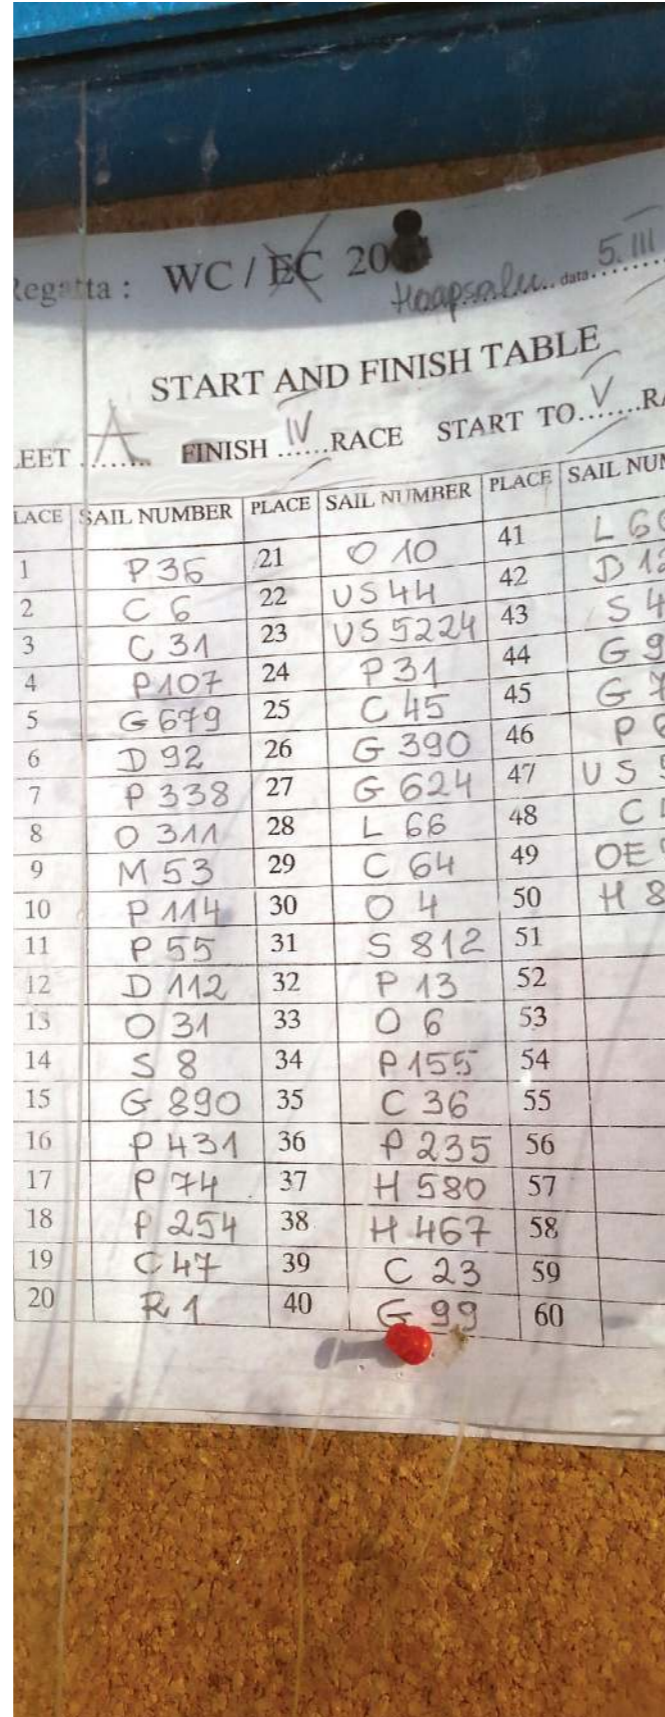 Regatta : WC / EC 20
Haapsalu data 5. III
START AND FINISH TABLE
LEET A FINISH IV RACE START TO V RA
LACE SAIL NUMBER PLACE SAIL NUMBER PLACE SAIL NUM
1 P36 21 O 10 41 L 66
2 C 6 22 US 44 42 D 12
3 C 31 23 US 5224 43 S 4
4 P107 24 P 31 44 G 9
5 G 679 25 C 45 45 G 7
6 D 92 26 G 390 46 P 6
7 P 338 27 G 624 47 US 5
8 O 311 28 L 66 48 C
9 M 53 29 C 64 49 OE
10 P 114 30 O 4 50 H 8
11 P 55 31 S 812 51
12 D 112 32 P 13 52
13 O 31 33 O 6 53
14 S 8 34 P 155 54
15 G 890 35 C 36 55
16 P 431 36 P 235 56
17 P 74 37 H 580 57
18 P 254 38 H 467 58
19 C 47 39 C 23 59
20 R 1 40 G 99 60